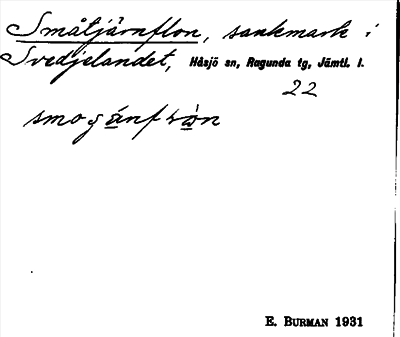 Småtjärnflon, sankmark i
Svedjelandet, Håsjö sn, Ragunda tg, Jämtl. l.
22
E. BURMAN 1931